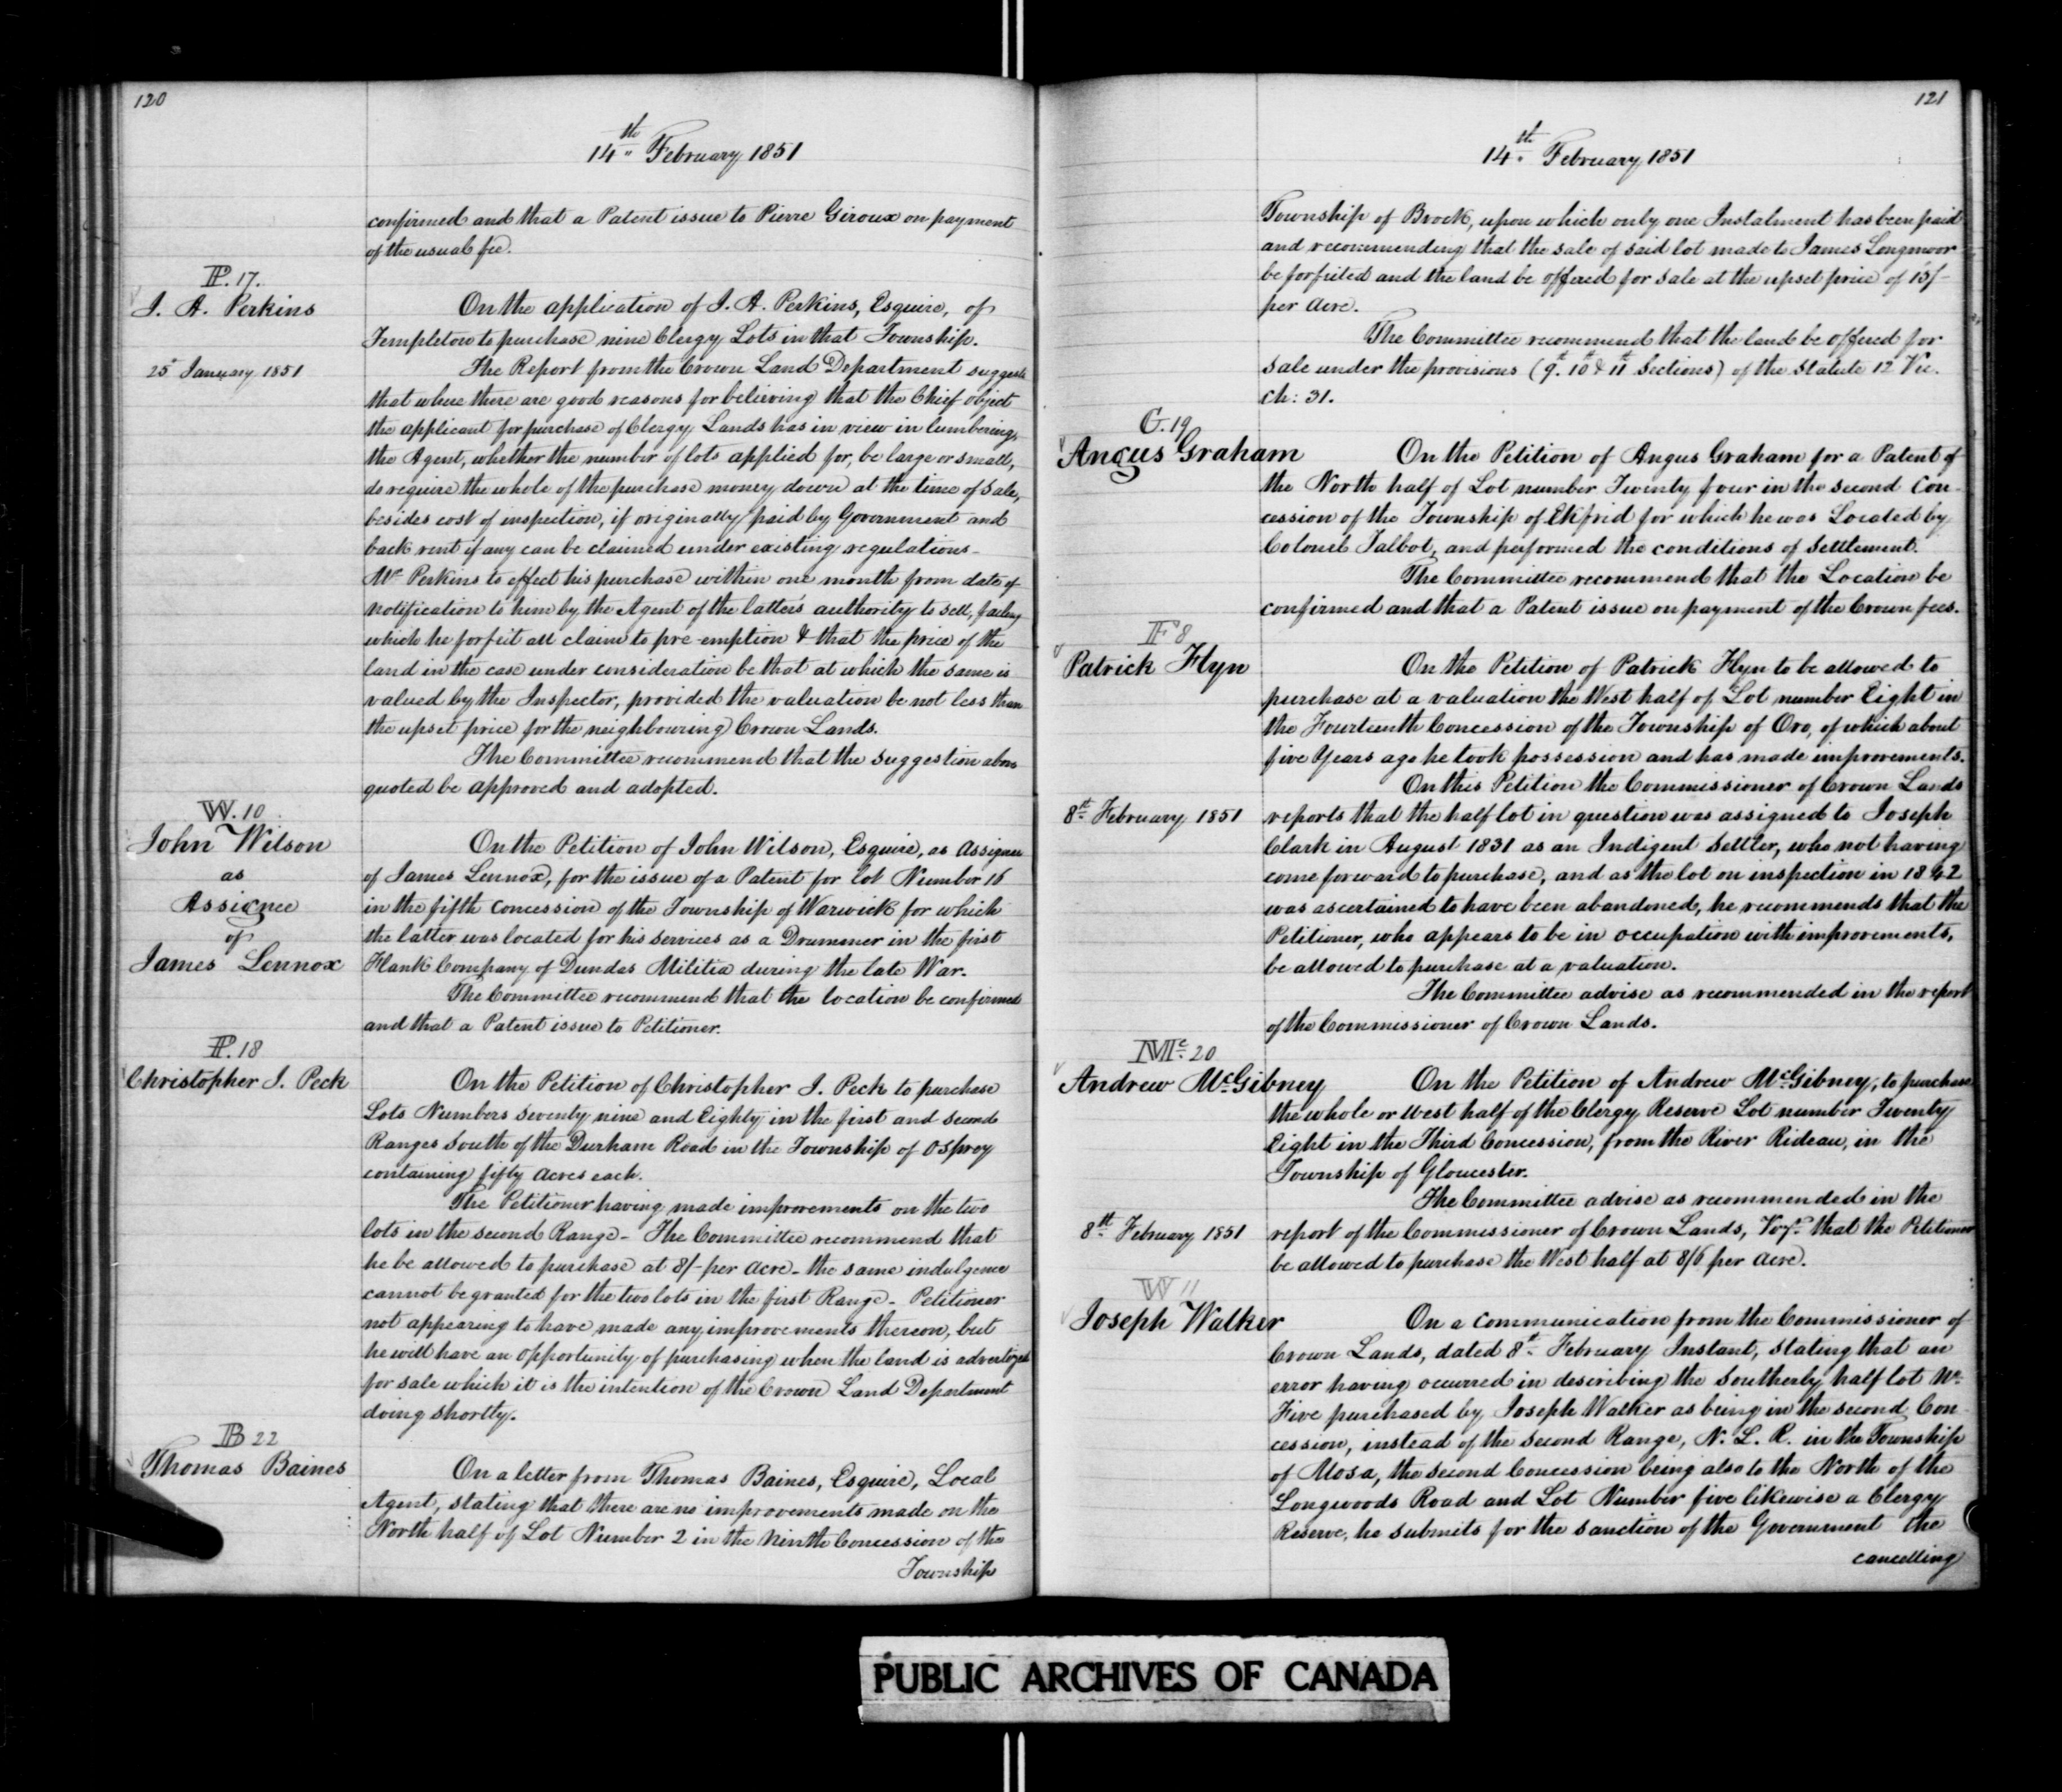 120
14th February 1851
confirmed and that a Patent issue to Pierre Giroux on payment
of the usual fee.
P. 17.
J. A. Perkins
On the application of J. A. Perkins, Esquire, of
Templeton to purchase nine Clergy Lots in that Township.
25 January 1851
The Report from the Crown Land Department suggests
that where there are good reasons for believing that the Chief object
the applicant for purchase of Clergy Lands has in view in lumbering,
the Agent, whether the number of lots applied for, be large or small,
do require the whole of the purchase money down at the time of Sale,
besides cost of inspection, if originally paid by Government and
back rent if any can be claimed under existing regulations–
Mr Perkins to effect his purchase within one month from date of
notification to him by the Agent of the latter's authority to sell, failing
which he forfeit all claim to pre-emption & that the price of the
land in the case under consideration be that at which the same is
valued by the Inspector, provided the valuation be not less than
the upset price for the neighbouring Crown Lands.
The Committee recommend that the suggestion above
quoted be approved and adopted.
W. 10
John Wilson
as
Assignee
of
James Lennox
On the Petition of John Wilson, Esquire, as Assignee
of James Lennox, for the issue of a Patent for lot Number 16
in the fifth concession of the Township of Warwick for which
the latter was located for his services as a Drummer in the first
Flank Company of Dundas Militia during the late War.
The Committee recommend that the location be confirmed
and that a Patent issue to Petitioner.
P. 18
Christopher J. Peck
On the Petition of Christopher J. Peck to purchase
Lots Numbers Seventy nine and Eighty in the first and second
Ranges South of the Durham Road in the Township of Osprey
containing fifty acres each.
The Petitioner having made improvements on the two
lots in the second Range – The Committee recommend that
he be allowed to purchase at 8/– per acre – the same indulgence
cannot be granted for the two lots in the first Range – Petitioner
not appearing to have made any improvements thereon, but
he will have an opportunity of purchasing when the land is advertized
for sale which it is the intention of the Crown Land Department
doing shortly.
B 22
Thomas Baines
On a letter from Thomas Baines, Esquire, Local
Agent, stating that there are no improvements made on the
North half of Lot Number 2 in the Ninth Concession of the
Township
121
14th February 1851
Township of Brock, upon which only one Instalment has been paid
and recommending that the sale of said lot made to James Longmoor
be forfeited and the land be offered for sale at the upset price of 15/–
per acre.
The Committee recommend that the land be offered for
sale under the provisions (9th. 10th & 11th Sections) of the Statute 12 Vic.
Ch: 31.
G. 19
Angus Graham
On the Petition of Angus Graham for a Patent of
the North half of Lot number Twenty four in the second Con-
cession of the Township of Ekfrid for which he was Located by
Colonel Talbot, and performed the conditions of Settlement.
The Committee recommend that the Location be
confirmed and that a Patent issue on payment of the Crown fees.
F 8
Patrick Flyn
On the Petition of Patrick Flyn to be allowed to
purchase at a valuation the West half of Lot number Eight in
the Fourteenth Concession of the Township of Oro, of which about
five Years ago he took possession and has made improvements.
On this Petition the Commissioner of Crown Lands
8th February 1851
reports that the half lot in question was assigned to Joseph
Clark in August 1831 as an Indigent Settler, who not having
come forward to purchase, and as the lot on inspection in 1842
was ascertained to have been abandoned, he recommends that the
Petitioner, who appears to be in occupation with improvements,
be allowed to purchase at a valuation.
The Committee advise as recommended in the report
of the Commissioner of Crown Lands.
Mc. 20
Andrew McGibney
On the Petition of Andrew McGibney, to purchase
the whole or West half of the Clergy Reserve Lot number Twenty
Eight in the Third Concession, from the River Rideau, in the
Township of Gloucester.
The Committee advise as recommended in the
8th February 1851
report of the Commissioner of Crown Lands, that the Petitioner
be allowed to purchase the West half at 8/6 per acre.
W 11
Joseph Walker
On a communication from the Commissioner of
Crown Lands, dated 8th February Instant, stating that an
error having occurred in describing the Southerly half lot No
Five purchased by Joseph Walker as being in the second Con-
cession, instead of the Second Range, N. L. R. in the Township
of Mosa, the second Concession being also to the North of the
Longwoods Road and Lot Number five likewise a Clergy
Reserve, he submits for the sanction of the Government the
cancelling
PUBLIC ARCHIVES OF CANADA